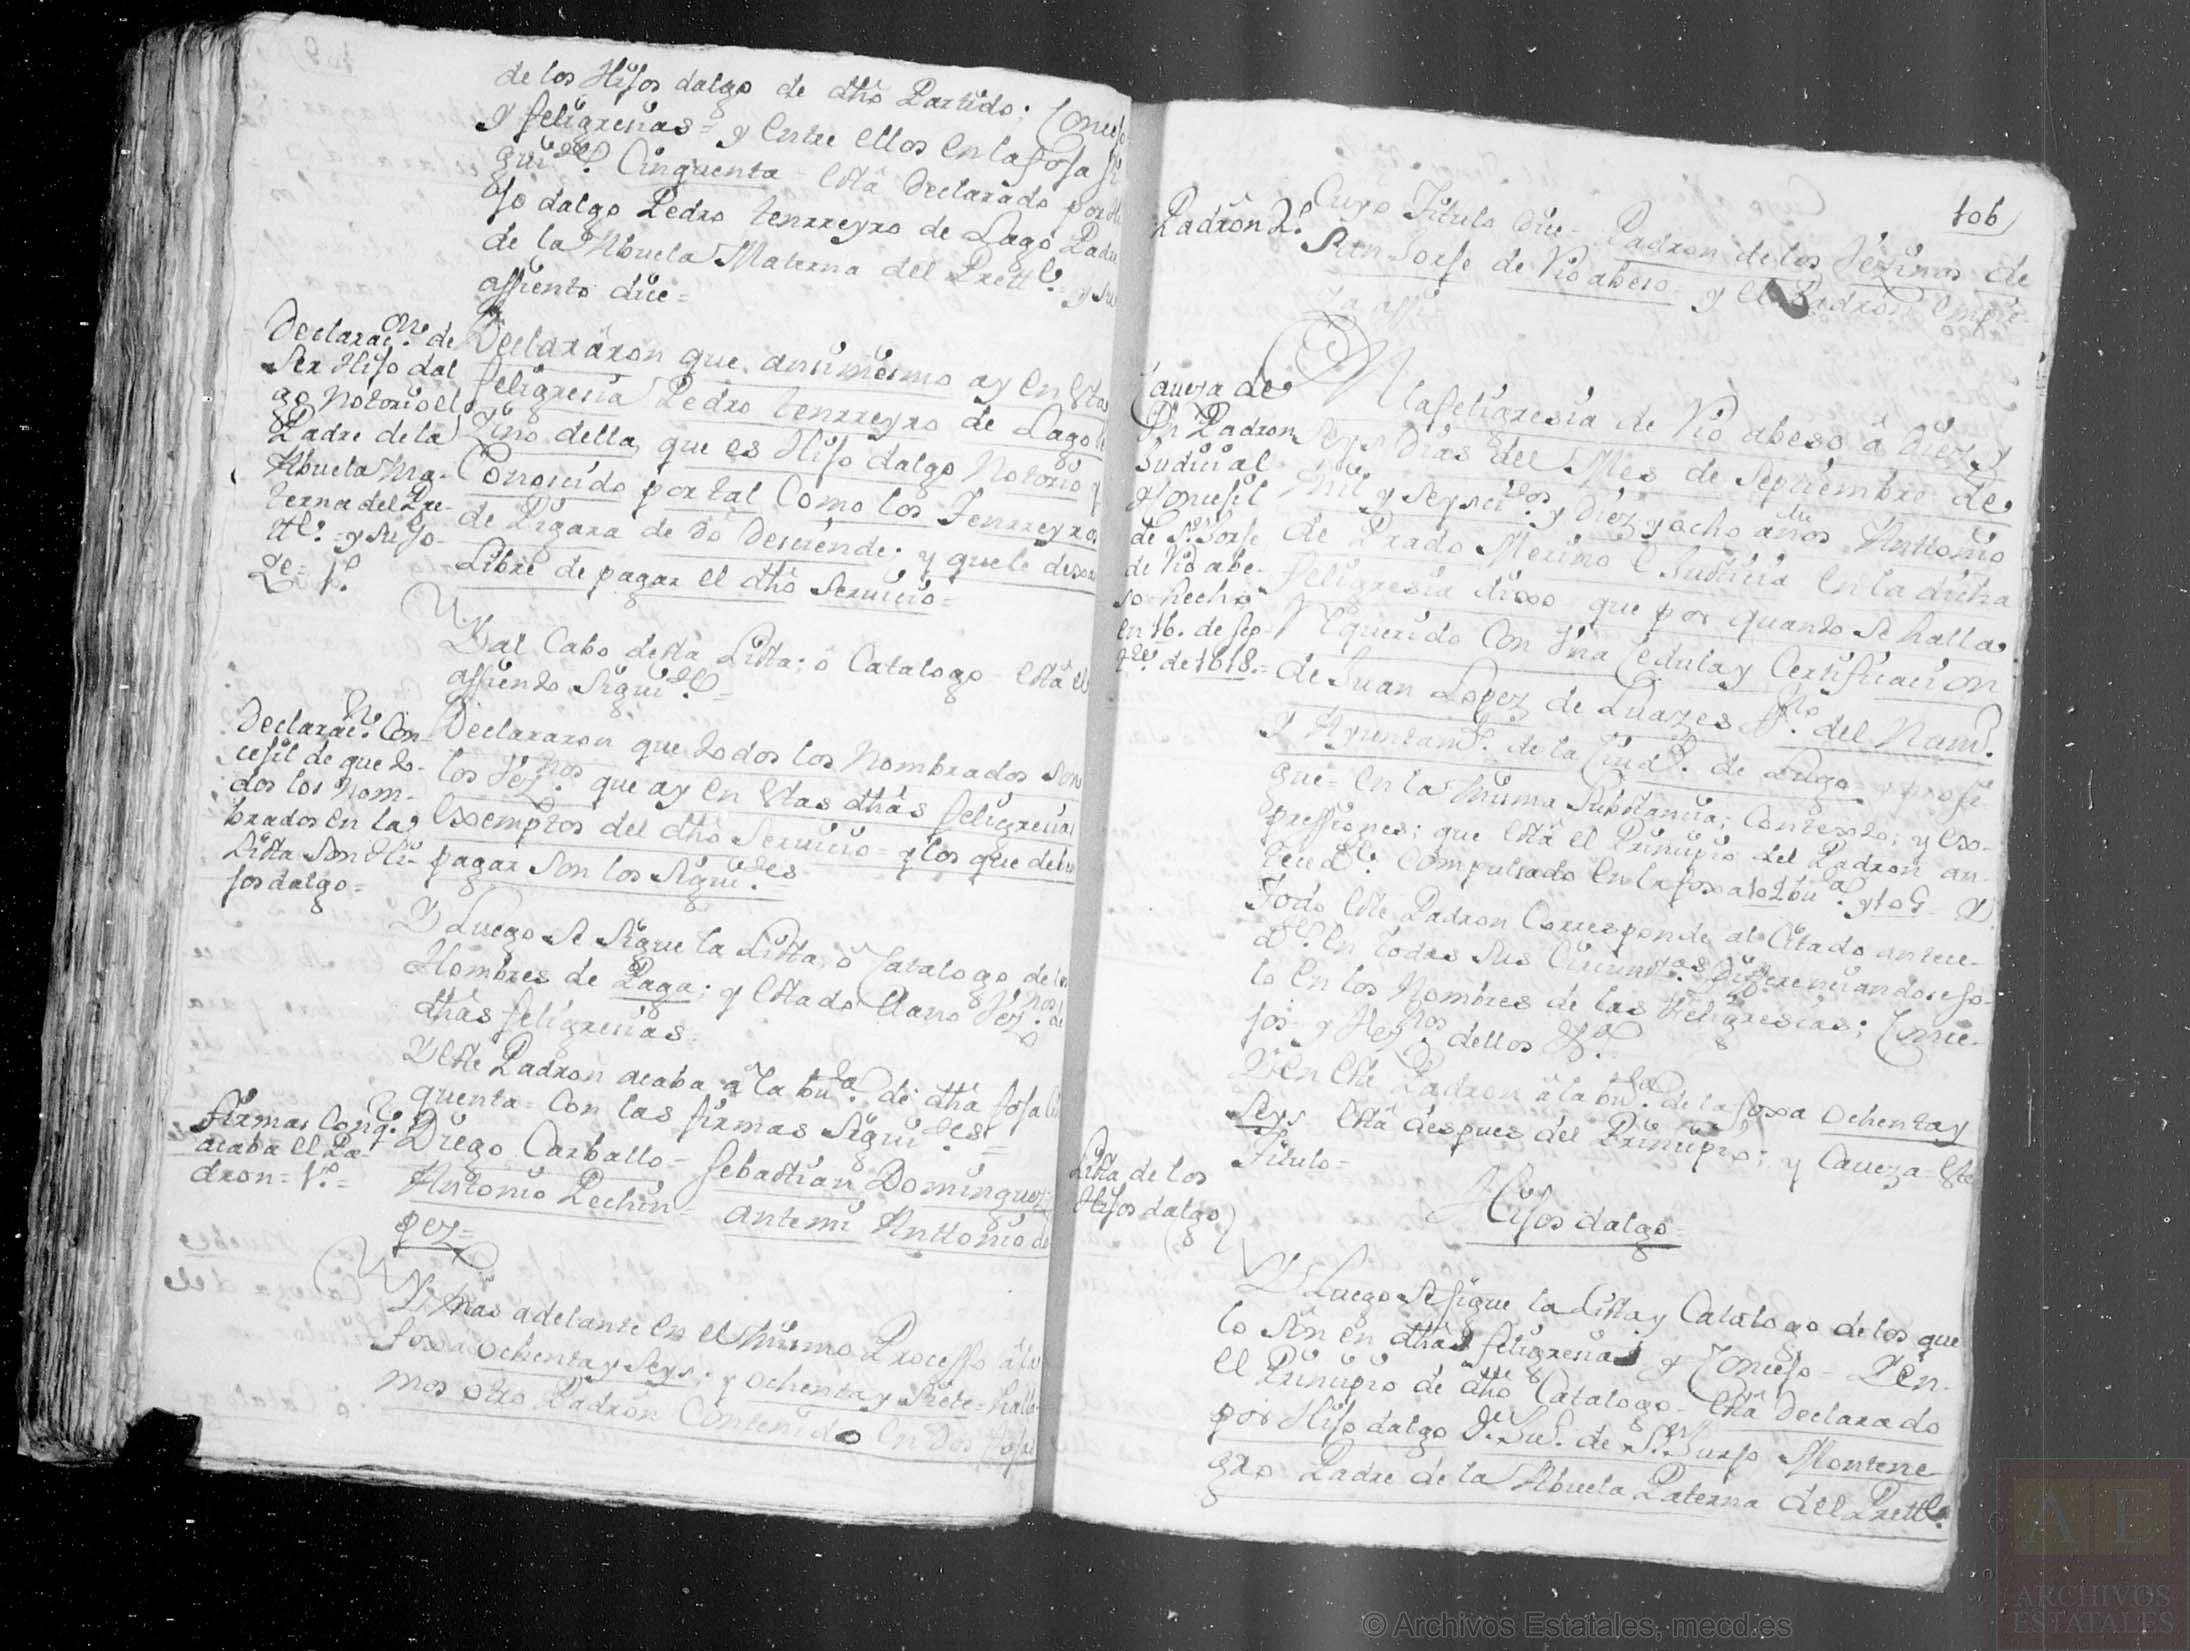 de los Hijos dalgo de dhô Partido; Concejo
y feligresias = y entre ellos en la foja si
gui.te Cinquenta = està Declarado por Hi
jo dalgo Pedro tenrreyro de Lago Padre
de la Abuela Materna del Prett.te y su
assiento dice =
Declarac.on de
Ser Hijo dal
go Notorio el
Padre de la
Abuela Ma-
terna del Pre-
tt.te = y su Jo-
ze = V.o
Declararon que ansimesmo ay en esta
feligresia Pedro tenrreyro de Lago Ve
zino della, que es Hijo dalgo Notorio y
Conosido por tal Como los Tenrreyros
de Pigara de Dô Desciende; y que le dexan
Libre de pagar el dhô Servicio =
Y al Cabo desta Lista; ô Catalogo està el
assiento Sigui.te =
Declarac.n Con-
cejil de que to-
dos los Nom-
brados en la
Lista Son Hi-
jos dalgo =
Declararon que todos los Nombrados Son
los Vez.nos que ay en estas dhâs feligresias
Exsemptos del dhô Servicio = y los que deben
pagar Son los Sigui.des
Y Luego se sigue la Lista, ô Catalogo de los
Hombres de Paga; y estado llano Vez.nos de
dhâs feligresias =
Y este Padron acaba â la bu.ta de dhâ foja cin
quenta = Con las firmas Sigui.tes =
Firmas Conq.e
acaba el Pa-
dron = V.o =
Diego Carballo = Sebastian Dominguez =
Antonio Pechin = ante mi Anttonio do
pez =
Y mas adelante en el mismo Processo â la
foxa ochenta y Seys; y ochenta y Siete = halla-
mos otro Padron Contenido en Dos fojas
106
Padron 2.o
Cuyo Titulo dice = Padron de los Vezinos de
San Jorje de Rio abeso = y el Padron empie-
za assi =
Caveza de
Un Padron
Judicial
y Concejil
de S.n Jorje
de Rio abe-
so = hecho
en 16. de Sep-
t.re de 1618. =
En la feligresia de Rio abeso â diez y
Seys dias del Mes de Septiembre de
mil y Seysci.dos y Diez y ocho años Anttonio
de Prado Merino e Justicia en la dicha
feligresia dixo que por quanto se halla
Requerido Con Vna Cedula y Certificacion
de Juan Lopez de Luazes S.no del Num.o
y Ayuntam.to de la Ciud.d de Lugo = y prosi-
gue = en la misma Substancia; Contexto; y exs-
pressiones; que està el Principio del Padron an-
teced.te Compulsado en la foxa 102 bu.ta y 105 = Y
Todo este Padron Corresponde al Citado antece-
d.te en todas sus Circuns.tas Differenciandose so-
lo en los Nombres de las Feligresias; Conce-
jos = y Vez.nos dellos &.a
Y en este Padron â la bu.ta de la foxa ochenta y
Seys = està despues del Principio; y Caveza = este
Titulo =
Lista de los
Hijos dalgo
Hijos dalgo =
Y Luego se sigue la Lista y Catalogo de los que
lo Son en dhâs feligresias y Concejo = Y en
el Principio de dhô Catalogo = està Declarado
por Hijo dalgo D.n Ju.o de S.n Jurjo Montene-
gro Padre de la Abuela Paterna del Prett.te
© Archivos Estatales, mecd.es
AE
ARCHIVOS
ESTATALES